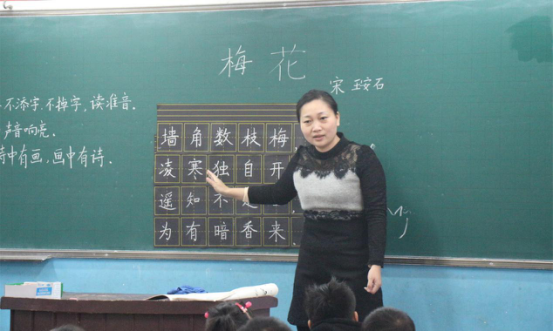 梅花
宋 王安石
不添字,不掉字,读准音.
声音响亮.
中有画,画中有诗.
墙角数枝梅
凌寒独自开
遥知不是
为有暗香来